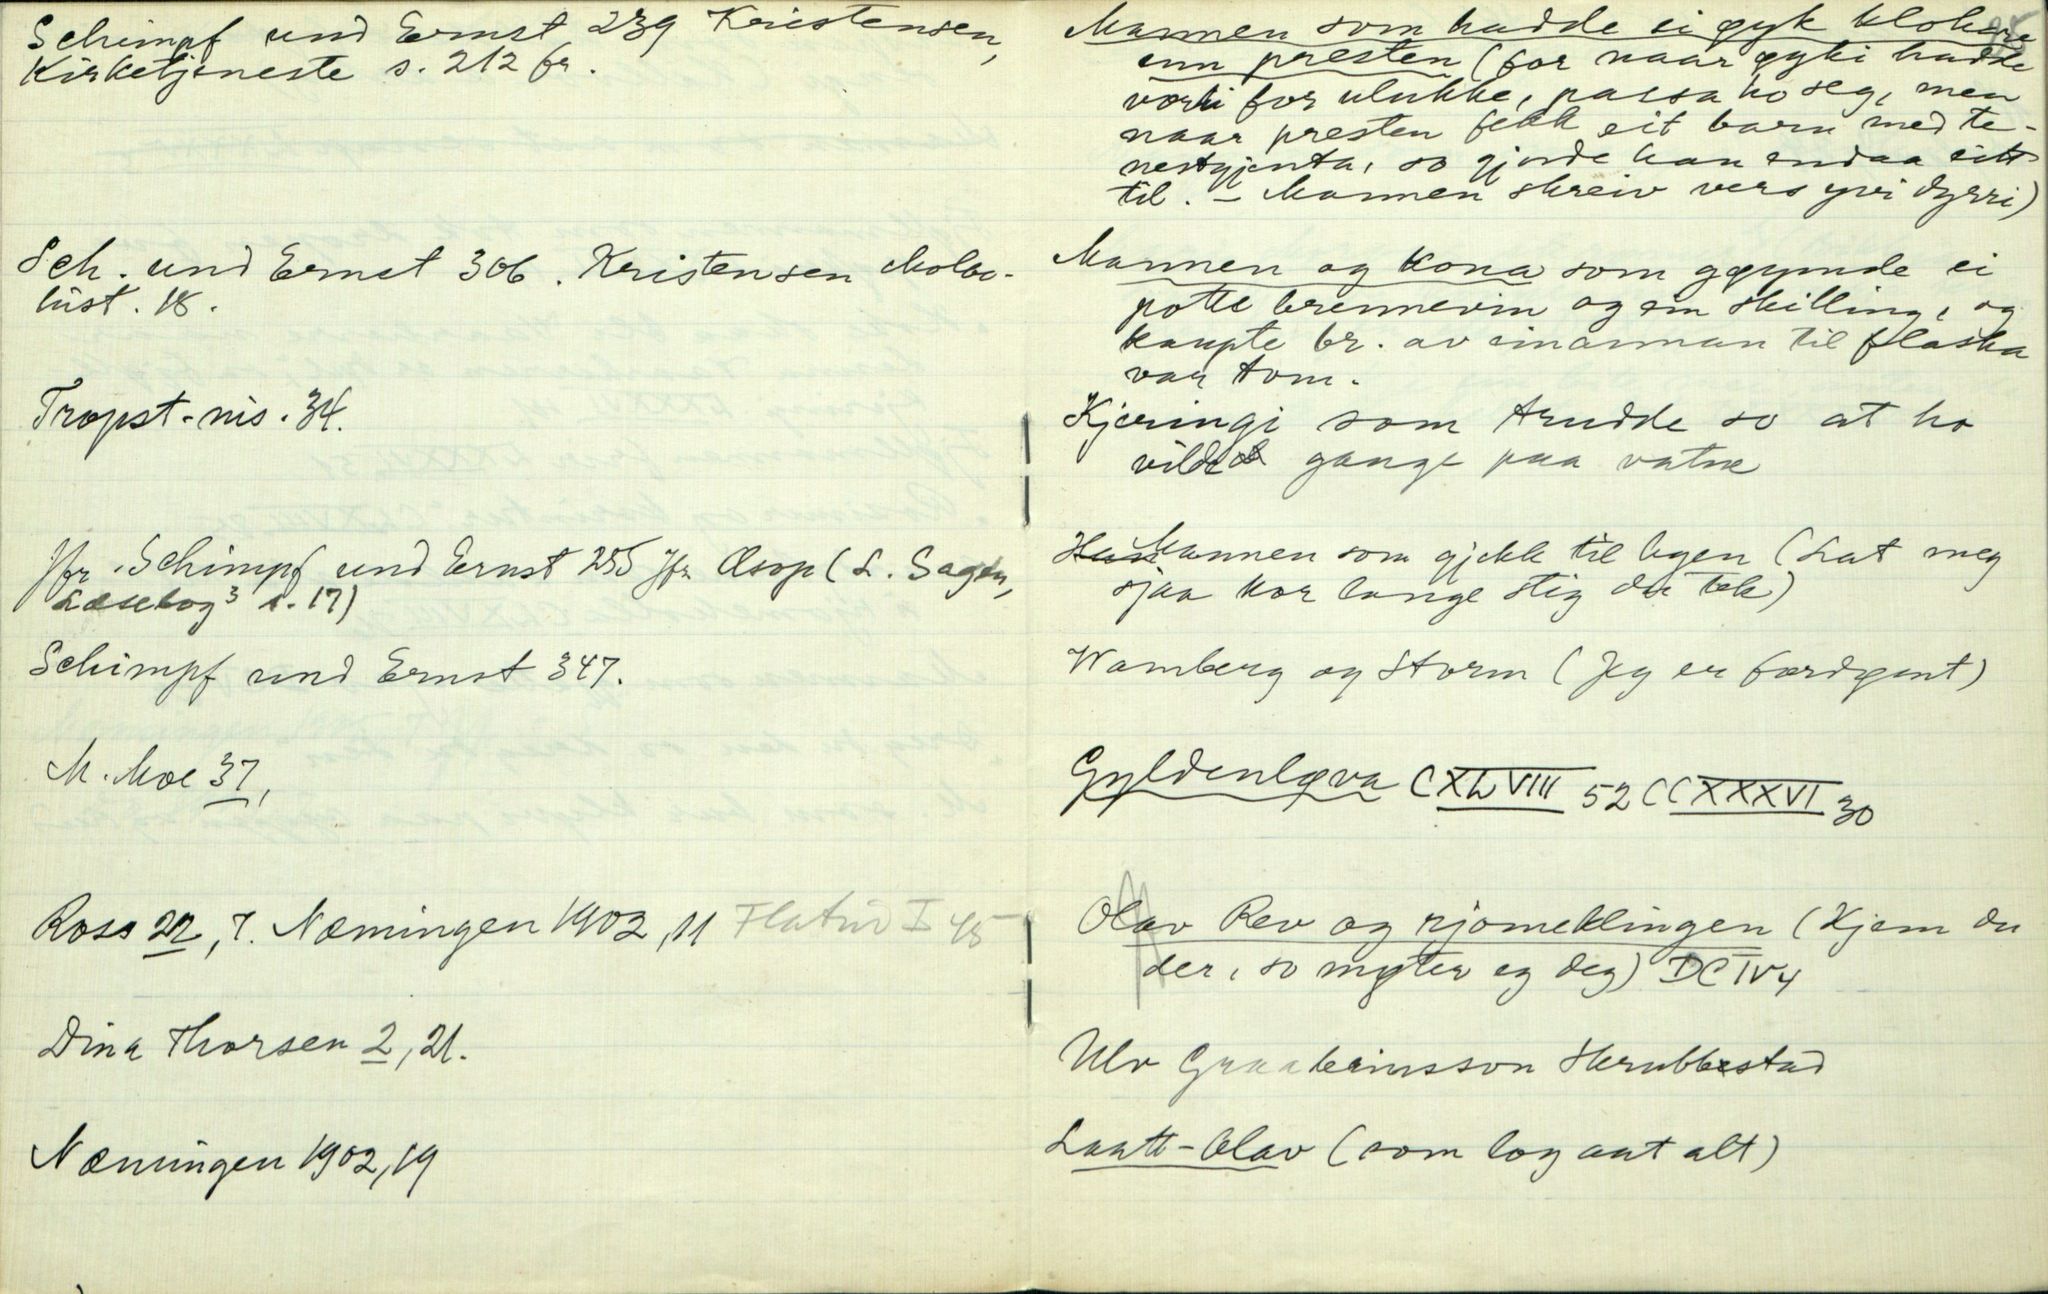 Schimpf und Ernst 239 Kristensen,
Kirketjeneste s. 212 fr.
Sch. und Ernst 306. Kristensen Molbo-
hist. 18.
Tropst-nis. 34.
Jfr. Schimpf und Ernst 255 Jfr Æsop (L. Sagen,
Læsebog³ s. 17)
Schimpf und Ernst 347.
M. Moe 37,
Ross 22, 7. Næmingen 1902, 11 Flatin I 45
Dina Thorsen 2, 21.
Næmingen 1902, 19
Mannen som hadde ei øyk klokare
enn presten (for naar øyki hadde
vorti for ulukke, passa ho seg, men
naar presten fekk eit barn med te-
nestgjenta, so gjorde han endaa eitt
til. – Mannen skreiv vers yvi dyrri)
Mannen og kona som gøymde ei
potte brennevin og ein skilling, og
kaupte br. av einannan til flaska
var tom.
Kjeringi som trudde so at ho
vilde gange paa vatne
Mannen som gjekk til legen (Lat meg
sjaa kor lange stig du tek)
Wamberg og Storm (Jeg er færdigent)
Gyldenløva CXLVIII 52 CCXXXVI 30
Olav Rev og rjomeklingen (Kjem du
der, so møter eg deg) DCIV 4
Ulv Graabeinsson Skrubbestad
Laatt-Olav (som log aat alt)